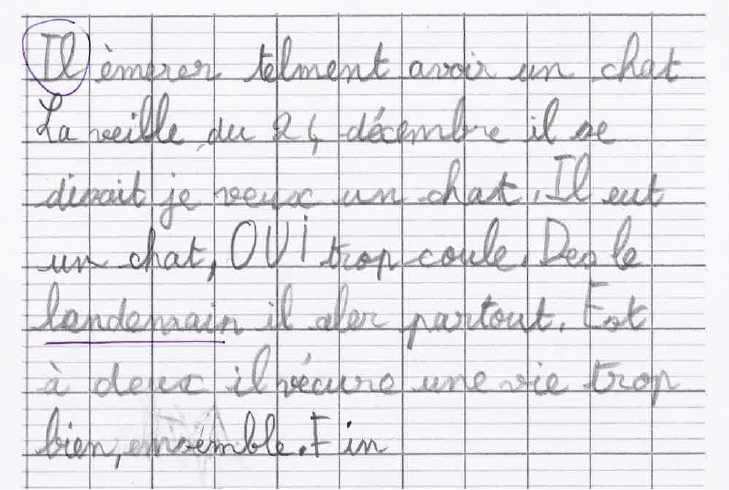 Il èmerer telment avoir un chat
La veille du 24 décembre il se
disait je veux un chat. Il eut
un chat, OUI trop coule. Des le
landemain il aler partout. Est
à deux il vécure une vie trop
bien, ensemble. Fin